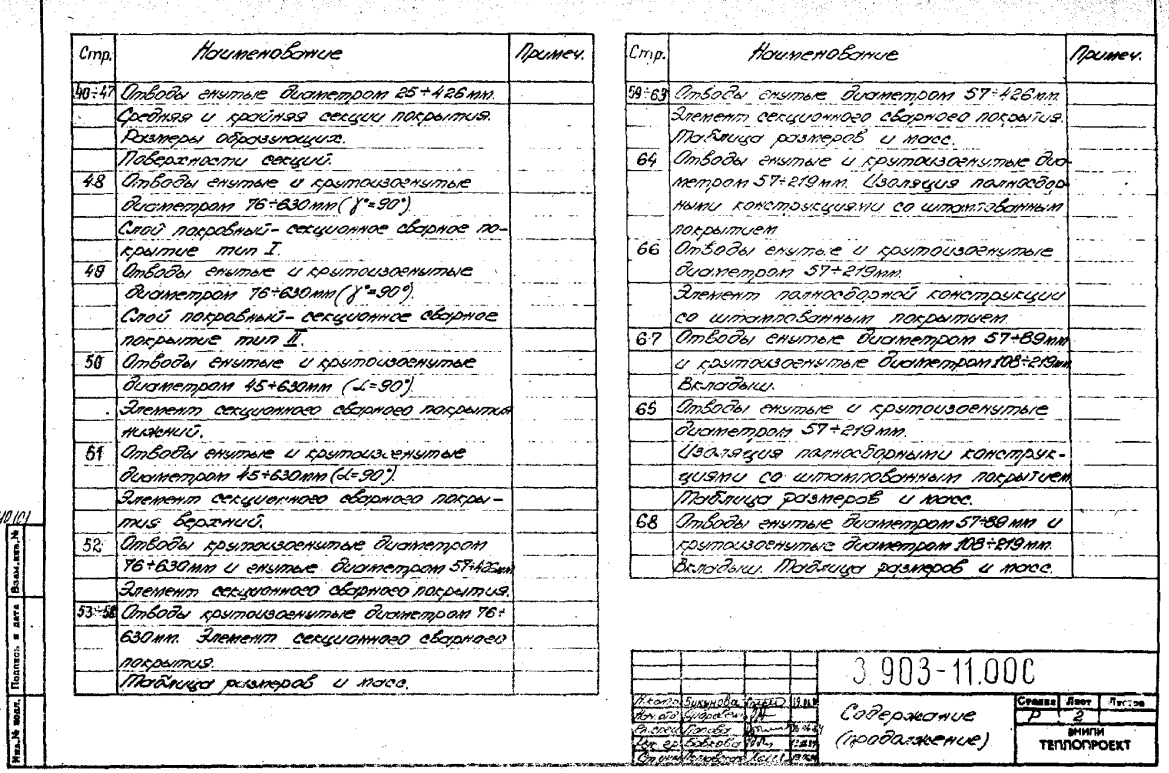 Стр. Наименование Примеч.
40÷47 Отводы гнутые диаметром 25÷426мм.
Средняя и крайняя секции покрытия.
Размеры образующих.
Поверхности секций.
48 Отводы гнутые и крутоизогнутые
диаметром 76÷630мм (γ°=90°).
Слой покровный- секционное сварное по-
крытие тип I.
49 Отводы гнутые и крутоизогнутые
диаметром 76÷630мм (γ°=90°).
Слой покровный- секционное сварное
покрытие тип II.
50 Отводы гнутые и крутоизогнутые
диаметром 45÷630мм (α=90°)
Элемент секционного сварного покрытия
нижний.
51 Отводы гнутые и крутоизогнутые
диаметром 45÷630мм (α=90°).
Элемент секционного сварного покры-
тия верхний.
52 Отводы крутоизогнутые диаметром
76÷630мм и гнутые диаметром 57÷426мм
Элемент секционного сварного покрытия.
53÷58 Отводы крутоизогнутые диаметром 76÷
630мм. Элемент секционного сварного
покрытия.
Таблица размеров и масс.
Стр. Наименование Примеч.
59÷63 Отводы гнутые диаметром 57÷426мм
Элемент секционного сварного покрытия.
Таблица размеров и масс.
64 Отводы гнутые и крутоизогнутые диа-
метром 57÷219мм. Изоляция полносбор-
ными конструкциями со штампованным
покрытием
66 Отводы гнутые и крутоизогнутые
диаметром 57÷219мм.
Элемент полносборной конструкции
со штампованным покрытием.
67 Отводы гнутые диаметром 57÷89мм
и крутоизогнутые диаметром 108÷219мм
Вкладыш.
65 Отводы гнутые и крутоизогнутые
диаметром 57÷219мм.
Изоляция полносборными конструк-
циями со штампованным покрытием
Таблица размеров и масс.
68 Отводы гнутые диаметром 57÷89мм и
крутоизогнутые диаметром 108÷219мм.
Вкладыш. Таблица размеров и масс.
Взам.инв.№
Подпись и дата
Инв.№ подл.
3.903-11.00С
Содержание
(продолжение)
Стадия Лист Листов
Р 2
ВНИПИ
ТЕПЛОПРОЕКТ